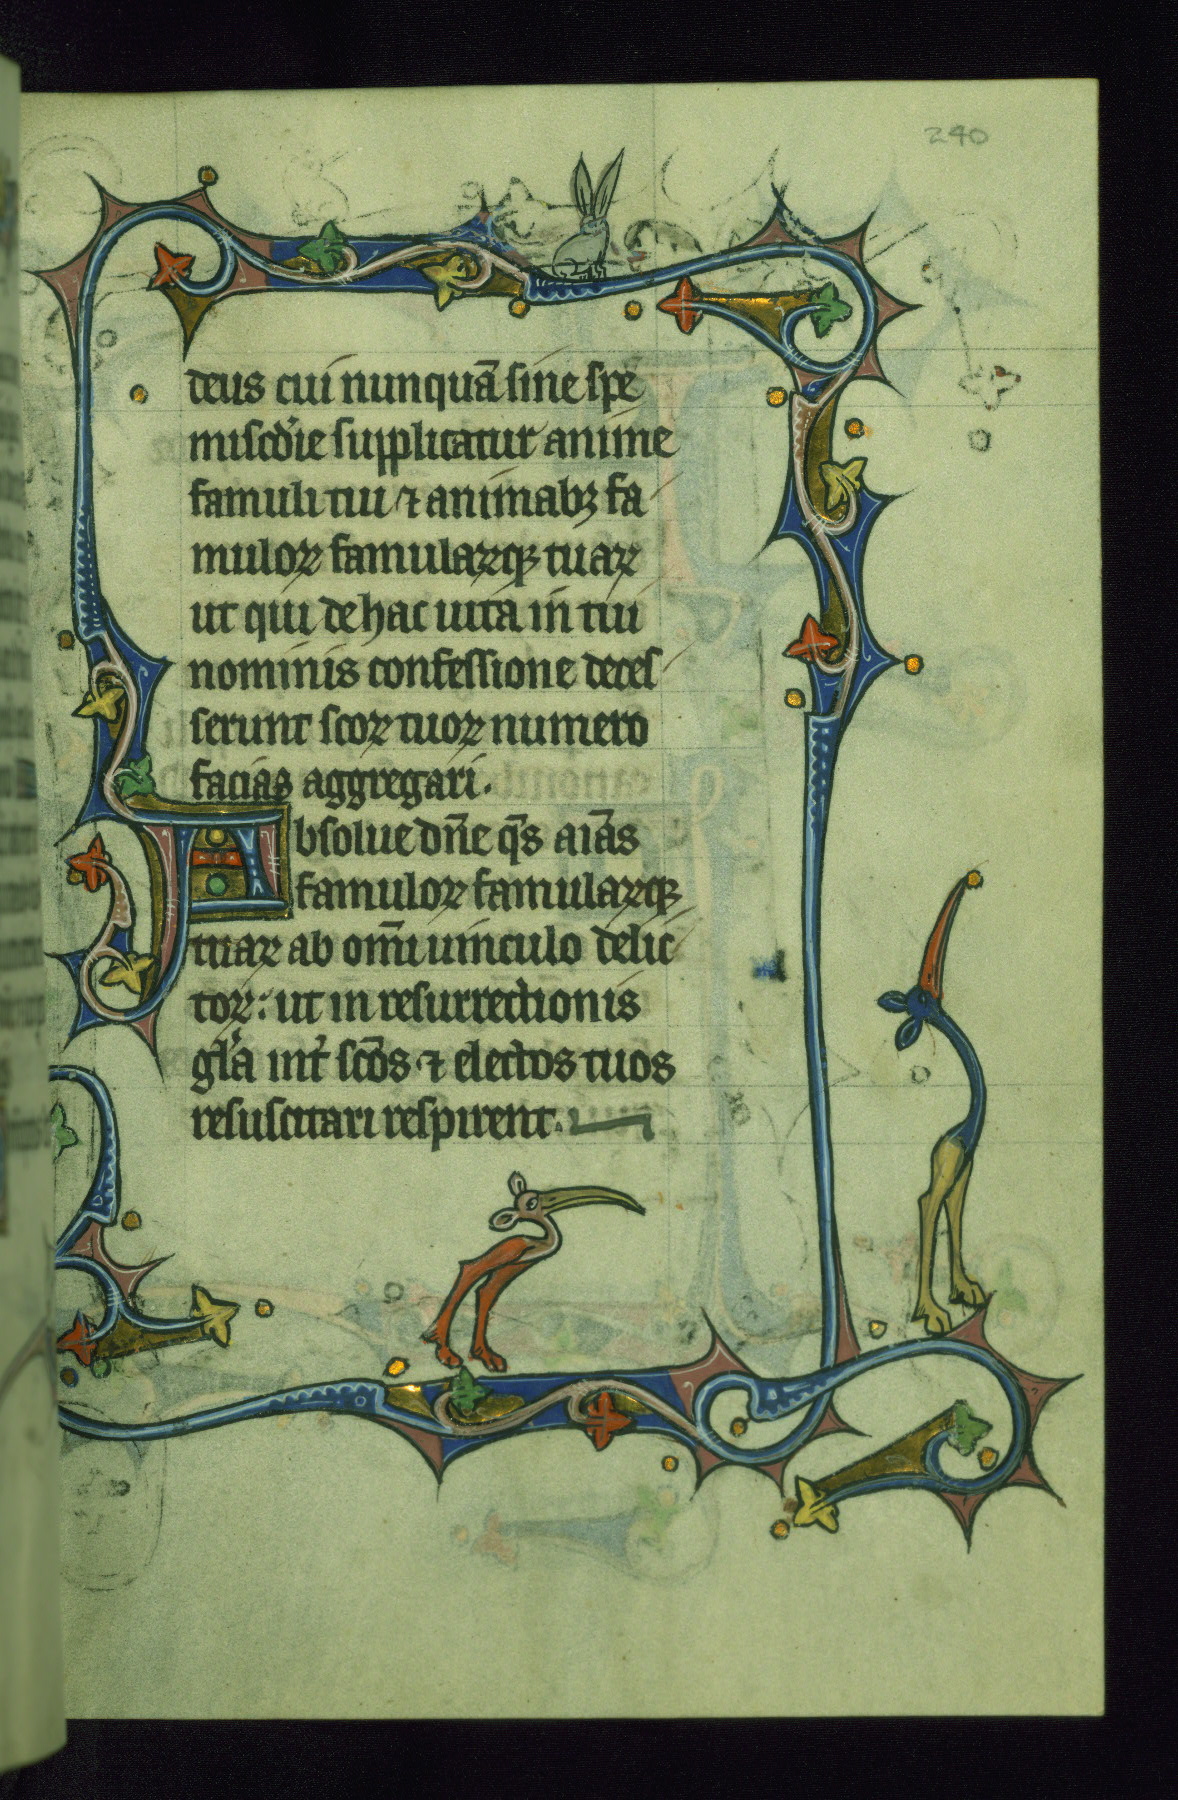 240
deus cui nunquā sine spe
misc̄die supplicatur anime
famuli tui ⁊ animabꝫ fa
muloꝝ famulaꝝqꝫ tuaꝝ
ut qui de hac uita in tui
nominis confessione deces
serunt sc̄oꝝ tuoꝝ numero
facias aggregari.
Absolue dn̄e q̄s aīas
famuloꝝ famulaꝝqꝫ
tuaꝝ ab omī uinculo delic
toꝝ: ut in resurrectionis
gl̄a int̄ sc̄os ⁊ electos tuos
resuscitari respirent.